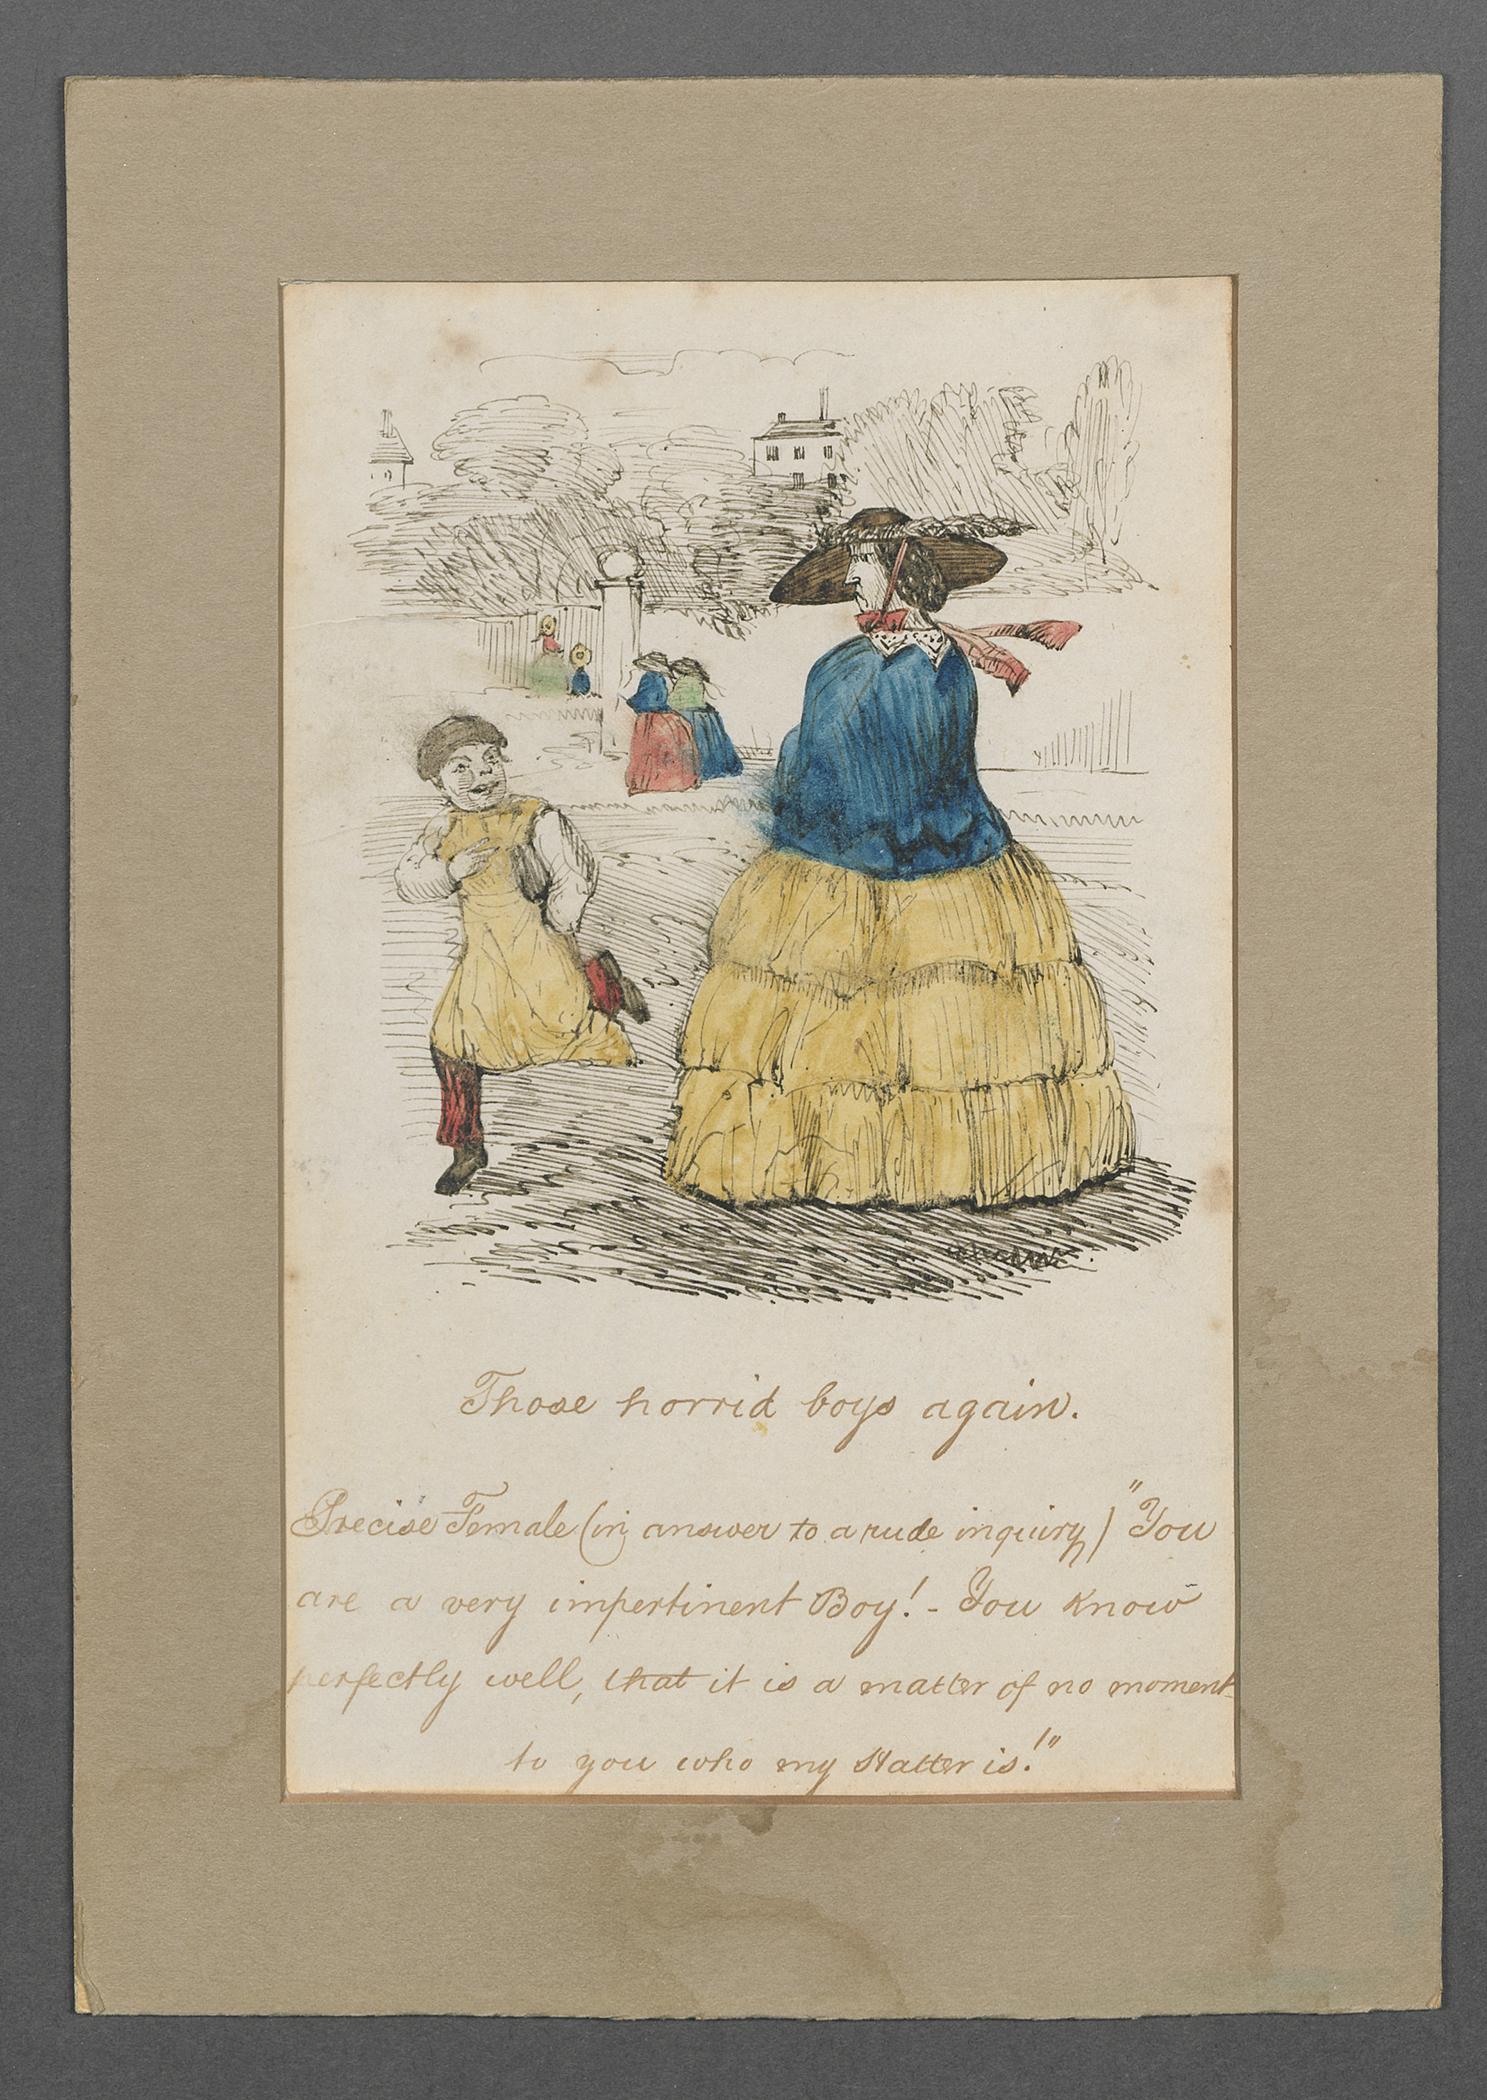 Those horrid boys again.
Precise Female (in answer to a rude inquiry) "You
are a very impertinent Boy! - You know
perfectly well, that it is a matter of no moment
to you who my Hatter is!"